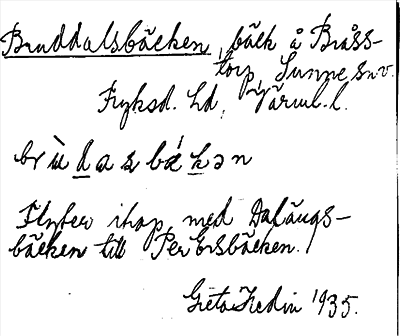 Bruddalsbäcken, bäck å Bråss-
torp, Sunne sn.
Fryksd. hd, Värml. l.
brùdasbǽkən
Flyter ihop med Dalängs-
bäcken till Per Ersbäcken.
Greta Hedin 1935.